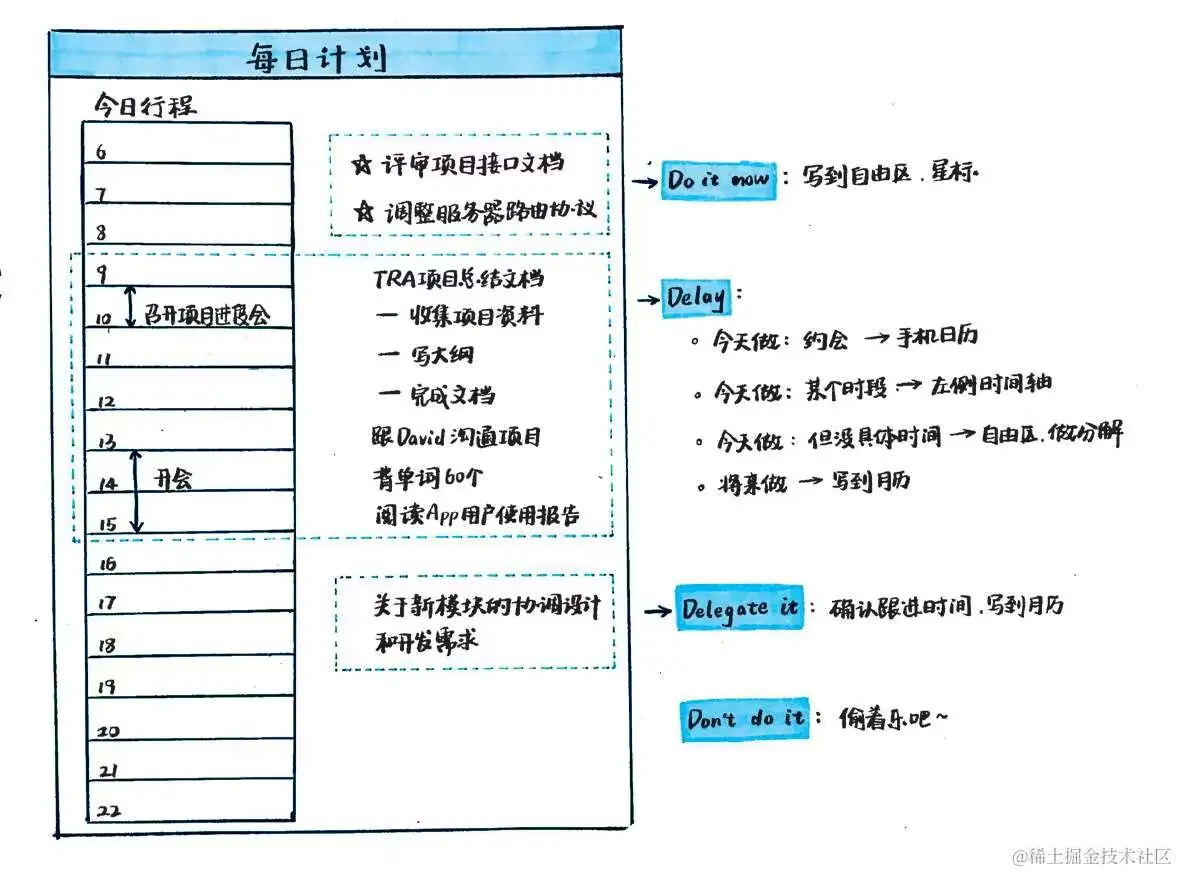 每日计划
今日行程
6
7
8
9
10 召开项目进度会
11
12
13
14 开会
15
16
17
18
19
20
21
22
☆ 评审项目接口文档
☆ 调整服务器路由协议
TRA项目总结文档
一 收集项目资料
一 写大纲
一 完成文档
跟David沟通项目
背单词60个
阅读App用户使用报告
关于新模块的协调设计
和开发需求
→ Do it now : 写到自由区、星标.
→ Delay :
。今天做: 约会 → 手机日历
。今天做: 某个时段 → 左侧时间轴
。今天做: 但没具体时间 → 自由区、做分解
。将来做 → 写到月历
→ Delegate it : 确认跟进时间、写到月历
Don't do it : 偷着乐吧~
@稀土掘金技术社区